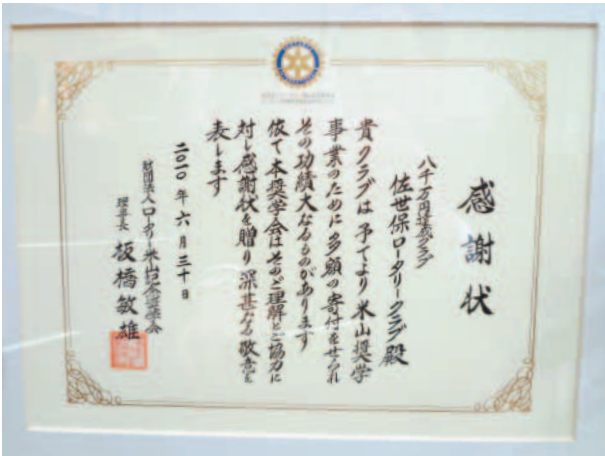 感謝状
八千万円達成クラブ
佐世保ロータリークラブ殿
貴クラブは予てより米山奨学
事業のために多額の寄付をせられ
その功績大なるものがあります
依て本奨学会はそのご理解とご協力に
対し感謝状を贈り深甚なる敬意を
表します
二〇一〇年六月三十日
財団法人ロータリー米山記念奨学会
理事長 板橋敏雄